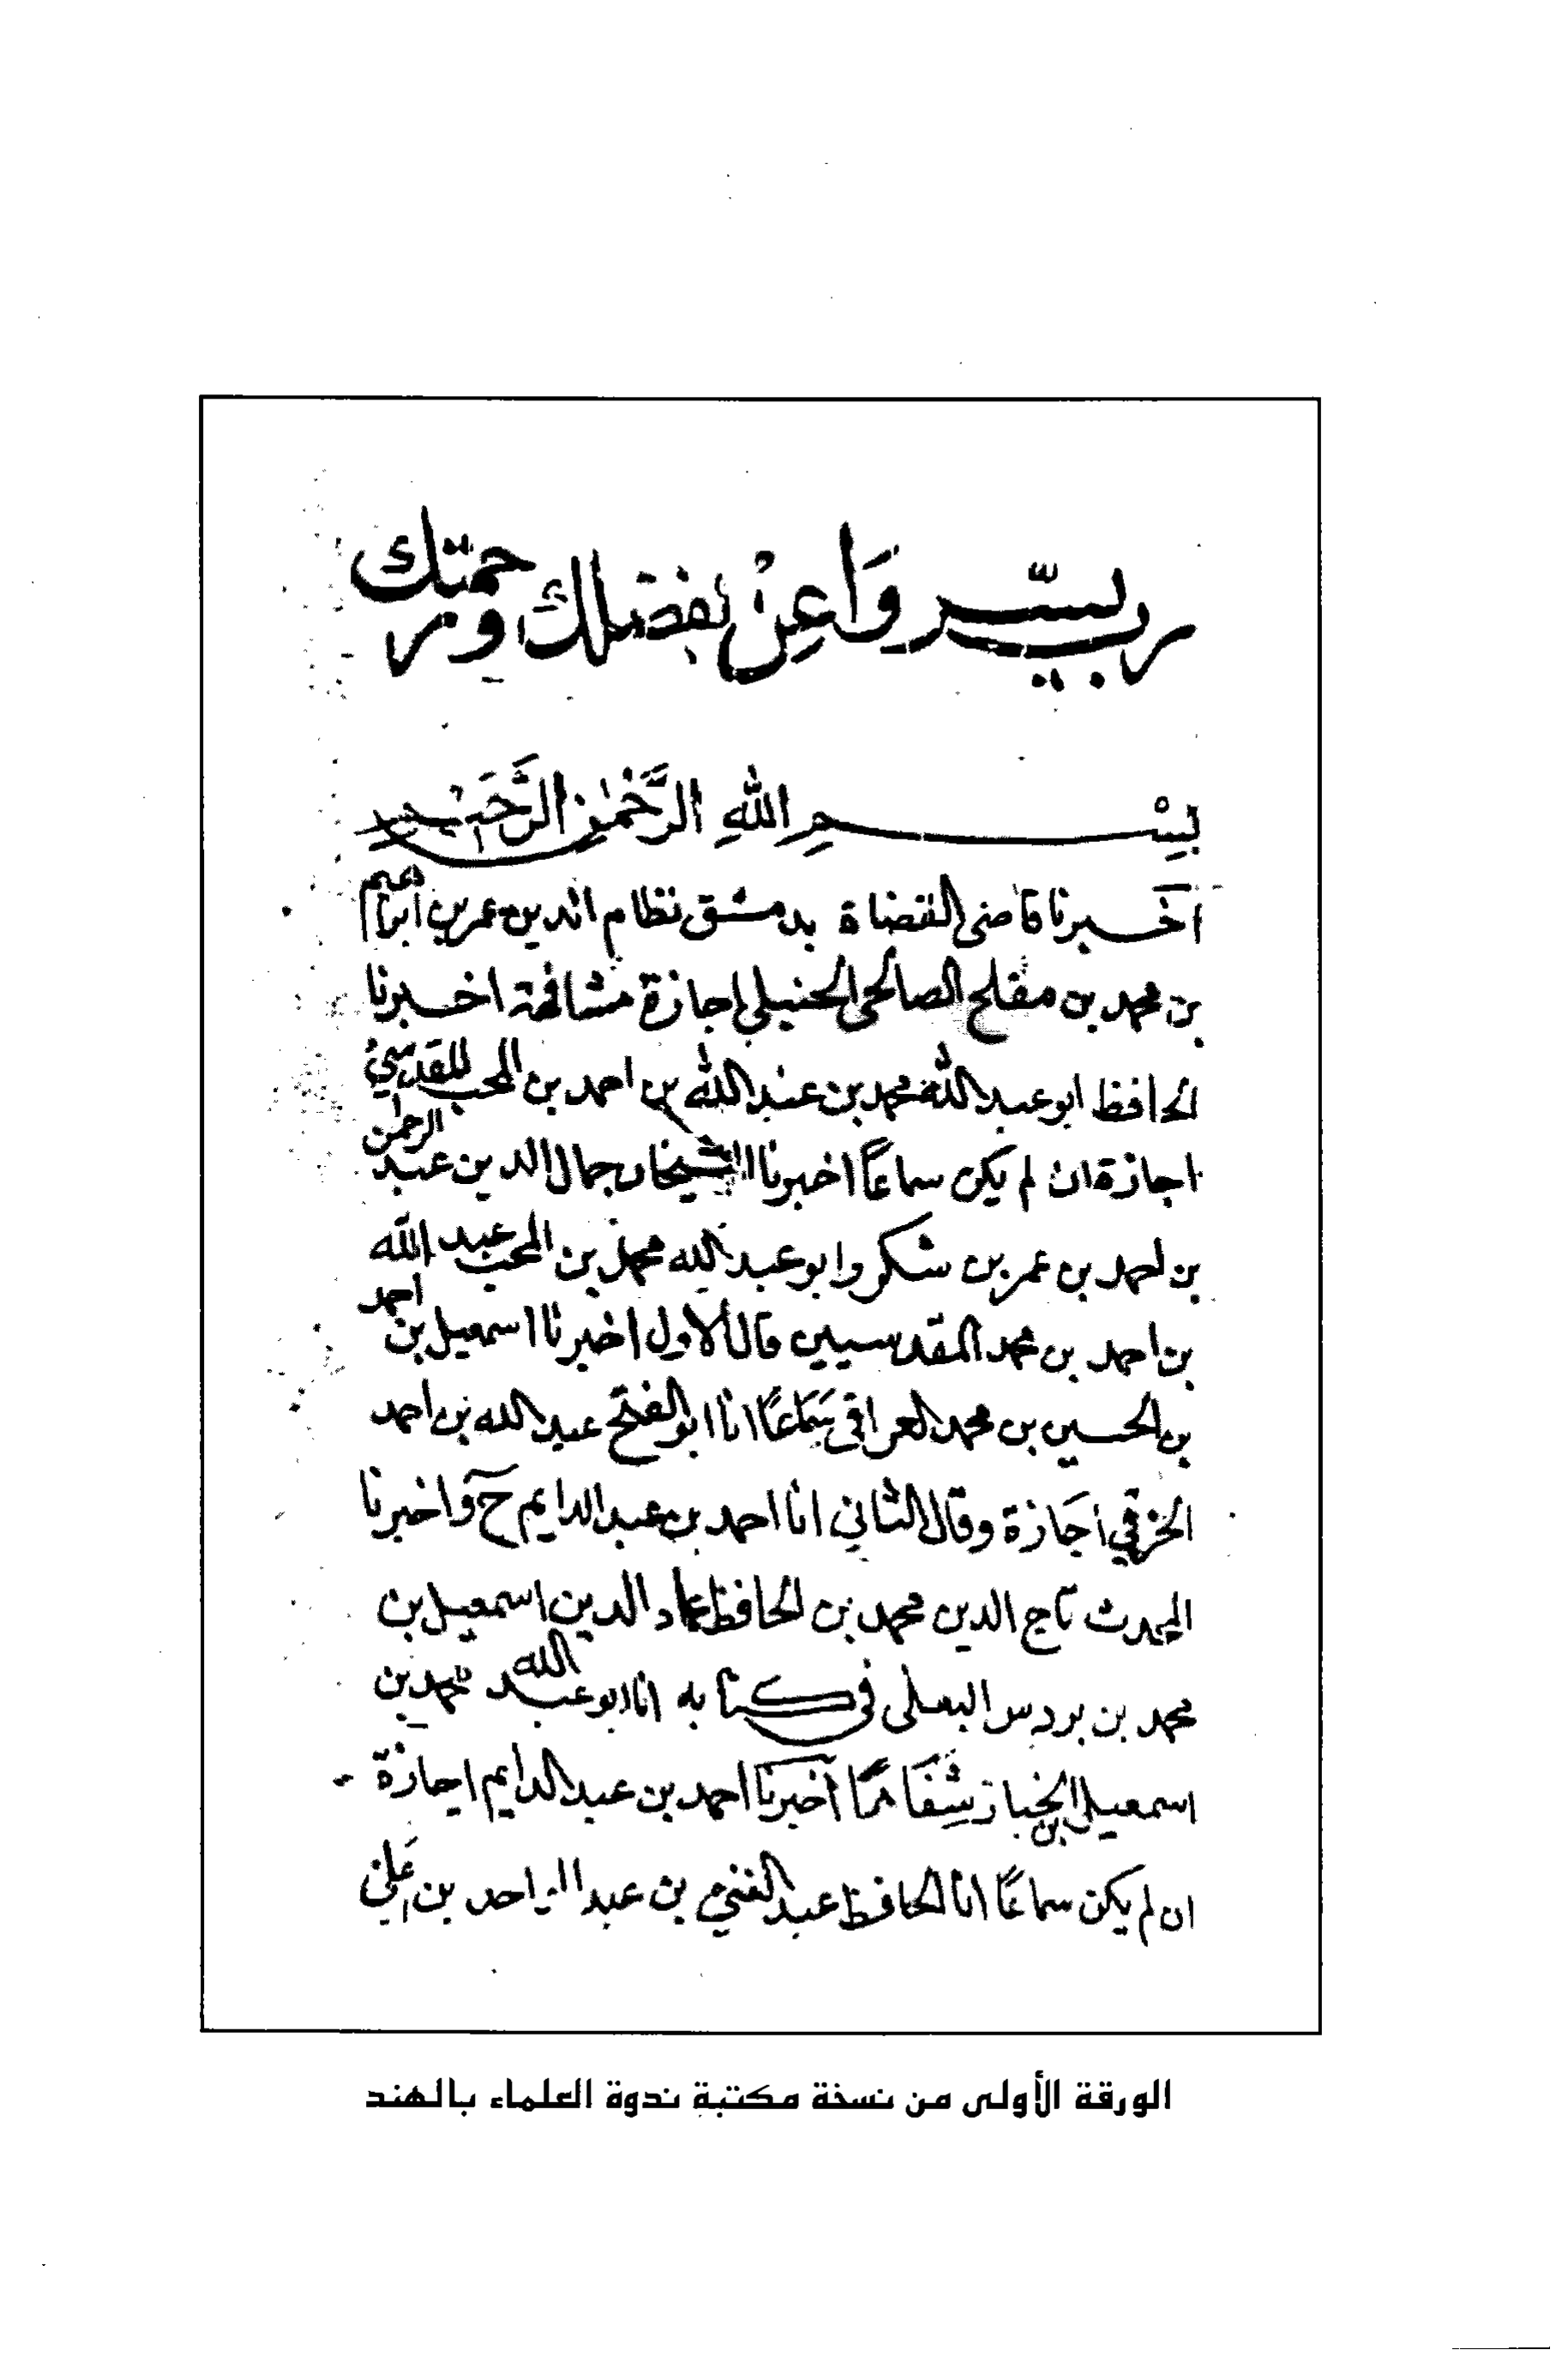 رب يسّر وَاعِنْ بفضلك ورحمتك
بِسْمِ اللهِ الرَّحْمٰنِ الرَّحَيْمِ
اَخبرنا قاضى القضاة بدمشق نظام الدين عمر بن ابراهيم
بن محمد بن مفلح الصالحى الحنبلي اجازة مشافهة اخبرنا
الحافظ ابو عبد الله محمد بن عبد الله بن احمد بن المحب المقدسيُ
اجازة ان لم يكن سماعًا اخبرنا الشيخان جمال الدين عبد الرحمن
بن احمد بن عمر بن شكر وابو عبد الله محمد بن المحب عبد الله
بن احمد بن محمد المقدسيين قال الاول اخبرنا اسمعيل بن احمد
بن الحسين بن محمد العراقى سَمَاعًا انا ابو الفتح عبد الله بن احمد
الخرقي اجَازة وقال الثاني انا احمد بن عبد الدايم ح وَاخبرنا
المحدث تاج الدين محمد بن الحافظ عماد الدين اسمعيل بن
محمد بن بردس البعلى فى كتابه انا ابو عبد الله محمد بن
اسمعيل بن الخباز شِفَاهًا اَخبرنا احمد بن عبد الدايم اجازة
ان لم يكن سماعًا انا الحافظ عبد الغني بن عبد الواحد بن عَلي
الورقة الأولى من نسخة مكتبة ندوة العلماء بالهند